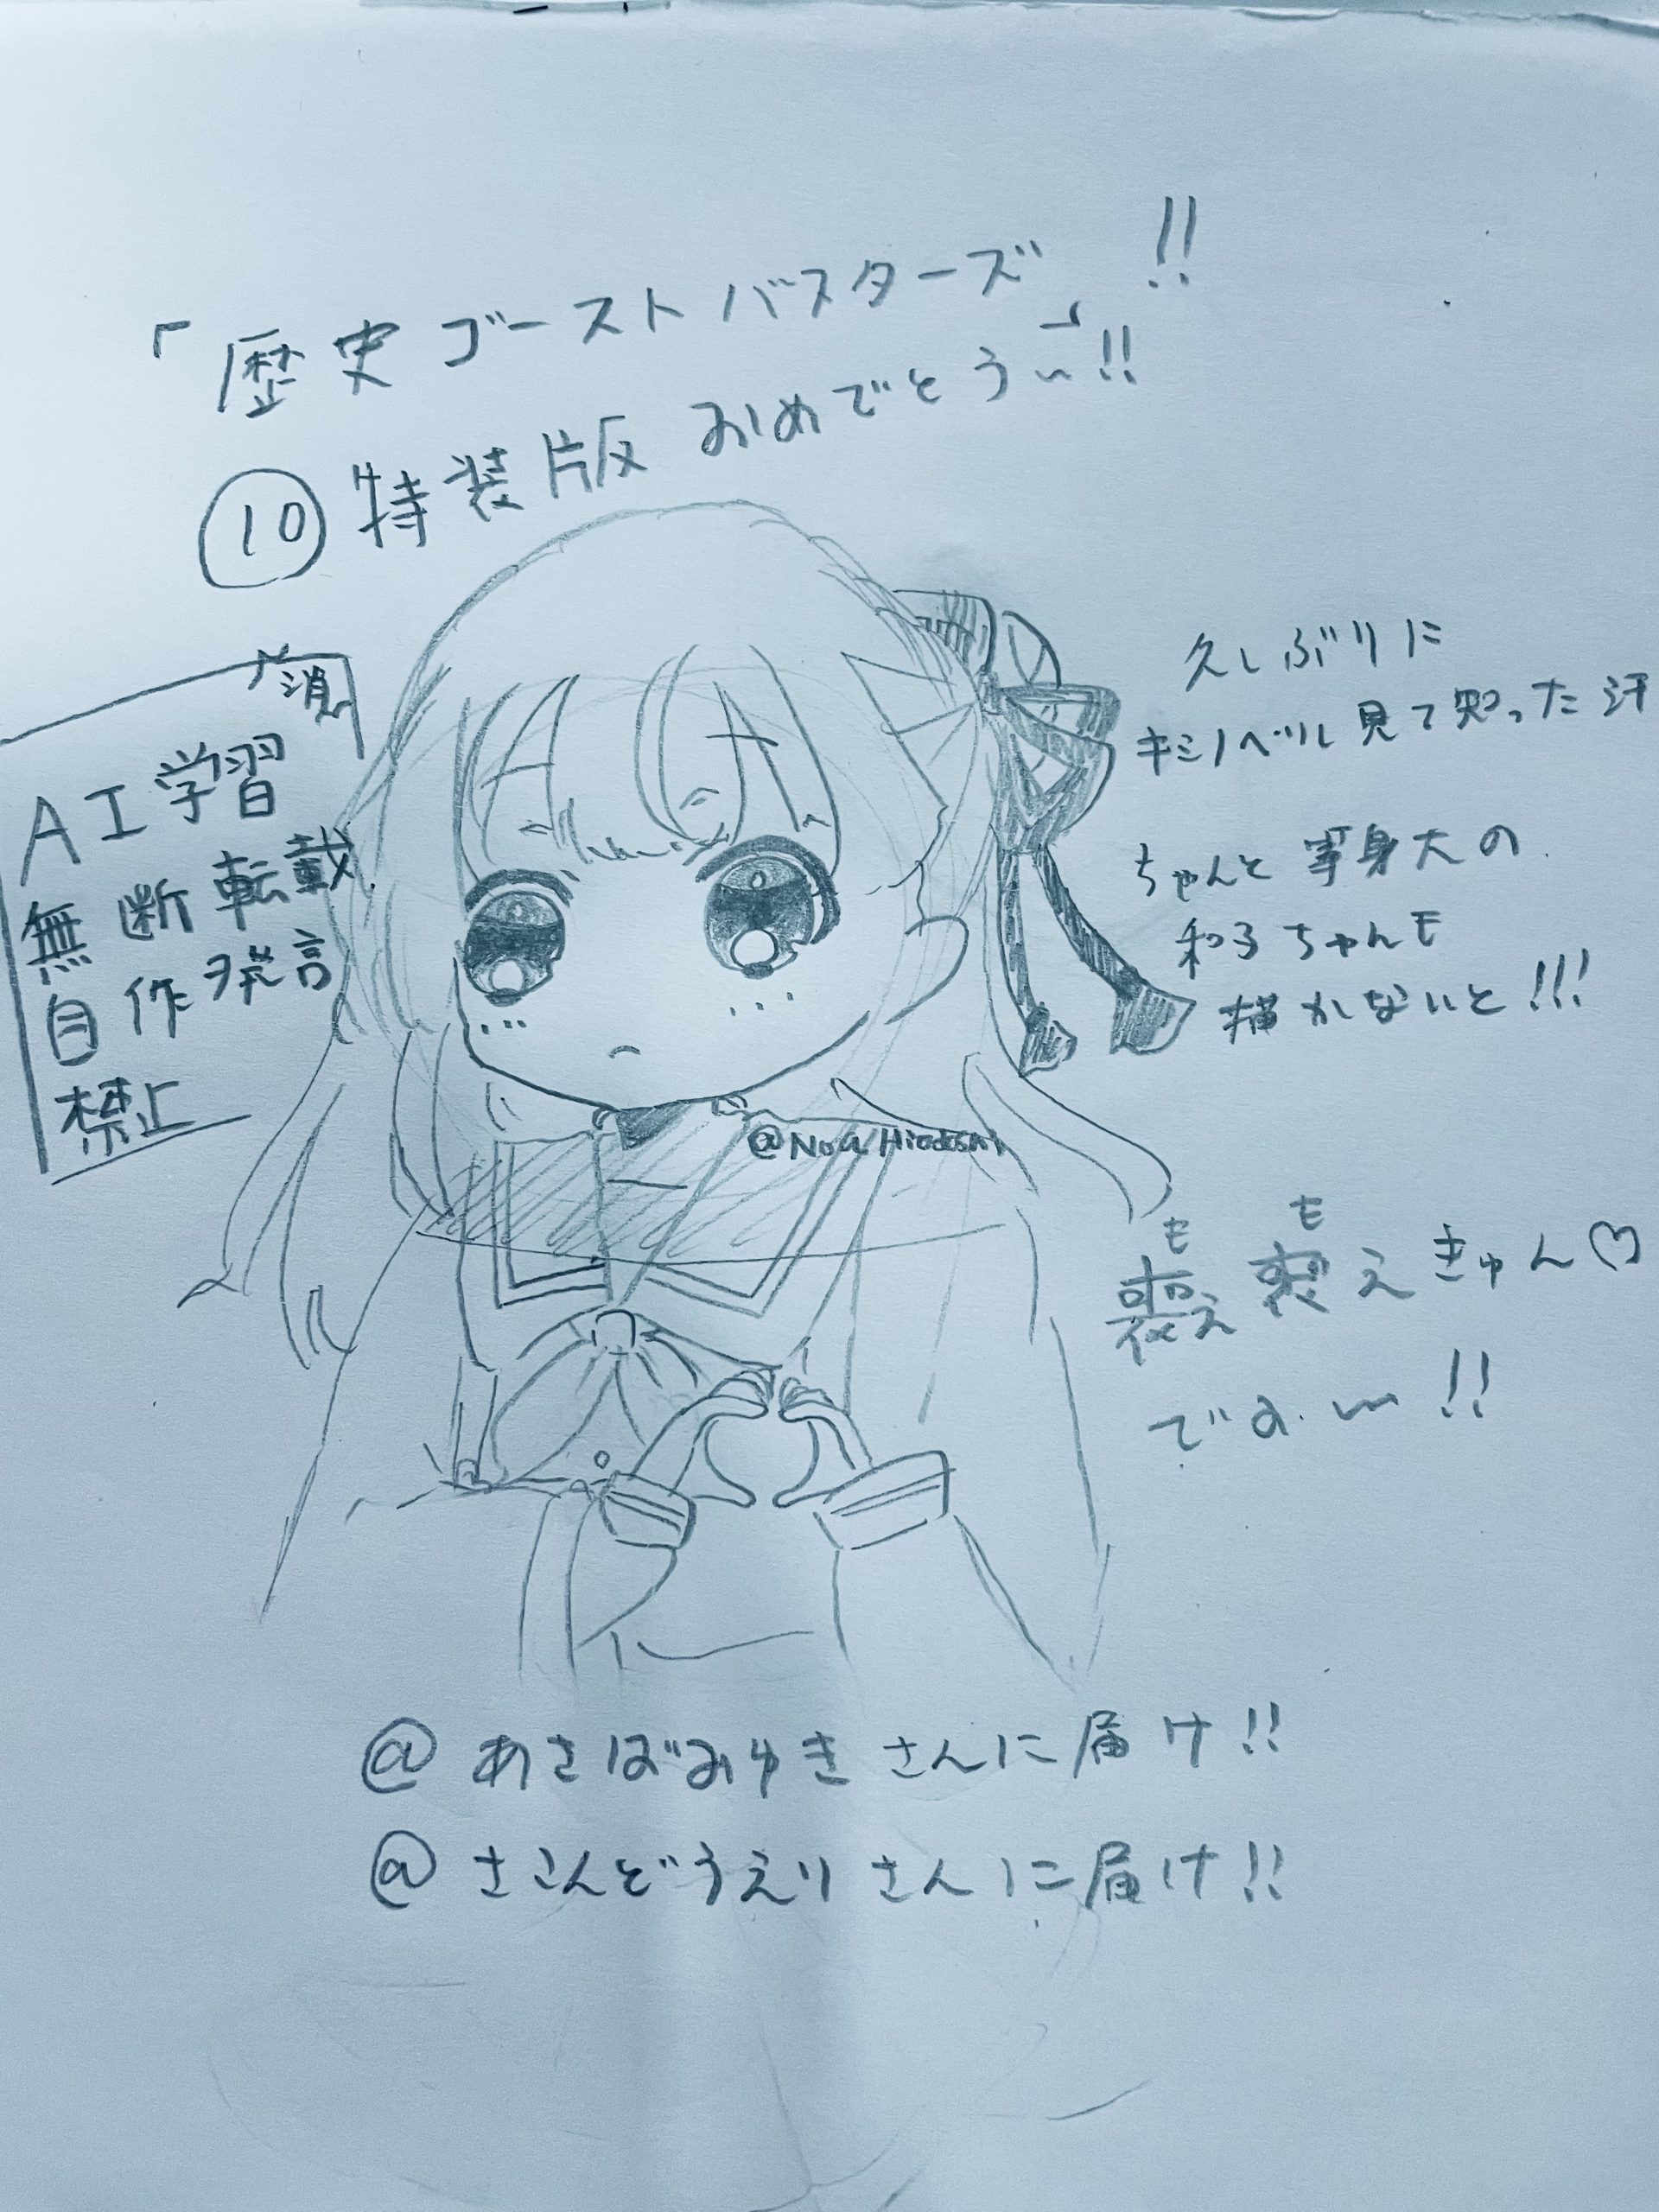 「歴史ゴーストバスターズ」!!
⑩特装版おめでとう〜!!
久しぶりに
キミノベル見て知った汗
消
AI学習
無断転載
自作発言
禁止
ちゃんと等身大の
和子ちゃんも
描かないと!!!
@Noa
も も
喪え喪えきゅん♡
でみ〜!!
@あさばみゆきさんに届け!!
@左近堂えりさんに届け!!